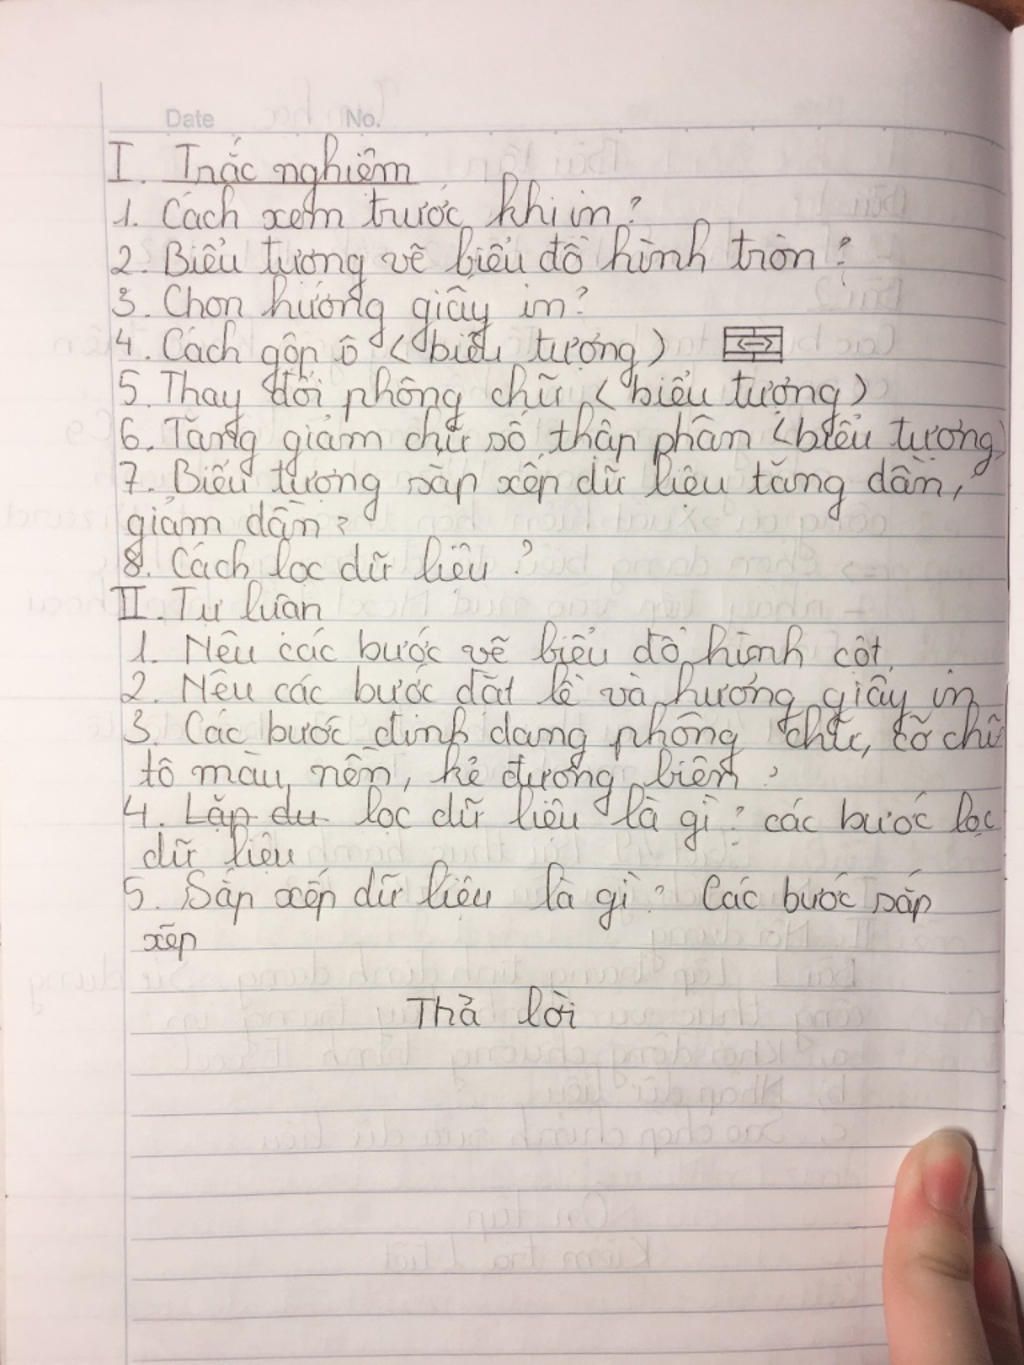 Date No.
I. Trắc nghiệm
1. Cách xem trước khi in?
2. Biểu tượng vẽ biểu đồ hình tròn?
3. Chọn hướng giấy in?
4. Cách gộp ô (biểu tượng)
5. Thay đổi phông chữ (biểu tượng)
6. Tăng giảm chữ số thập phân (biểu tượng)
7. Biểu tượng sắp xếp dữ liệu tăng dần,
giảm dần?
8. Cách lọc dữ liệu?
II. Tự luận
1. Nêu các bước vẽ biểu đồ hình cột.
2. Nêu các bước đặt lề và hướng giấy in
3. Các bước định dạng phông chữ, cỡ chữ
tô màu nền, kẻ đường biên?
4. Lặp du lọc dữ liệu là gì? các bước lọc
dữ liệu
5. Sắp xếp dữ liệu là gì? Các bước sắp
xếp
Thả lời